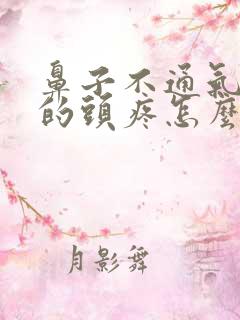 鼻子不通氣
的頭疼怎麼
月影舞